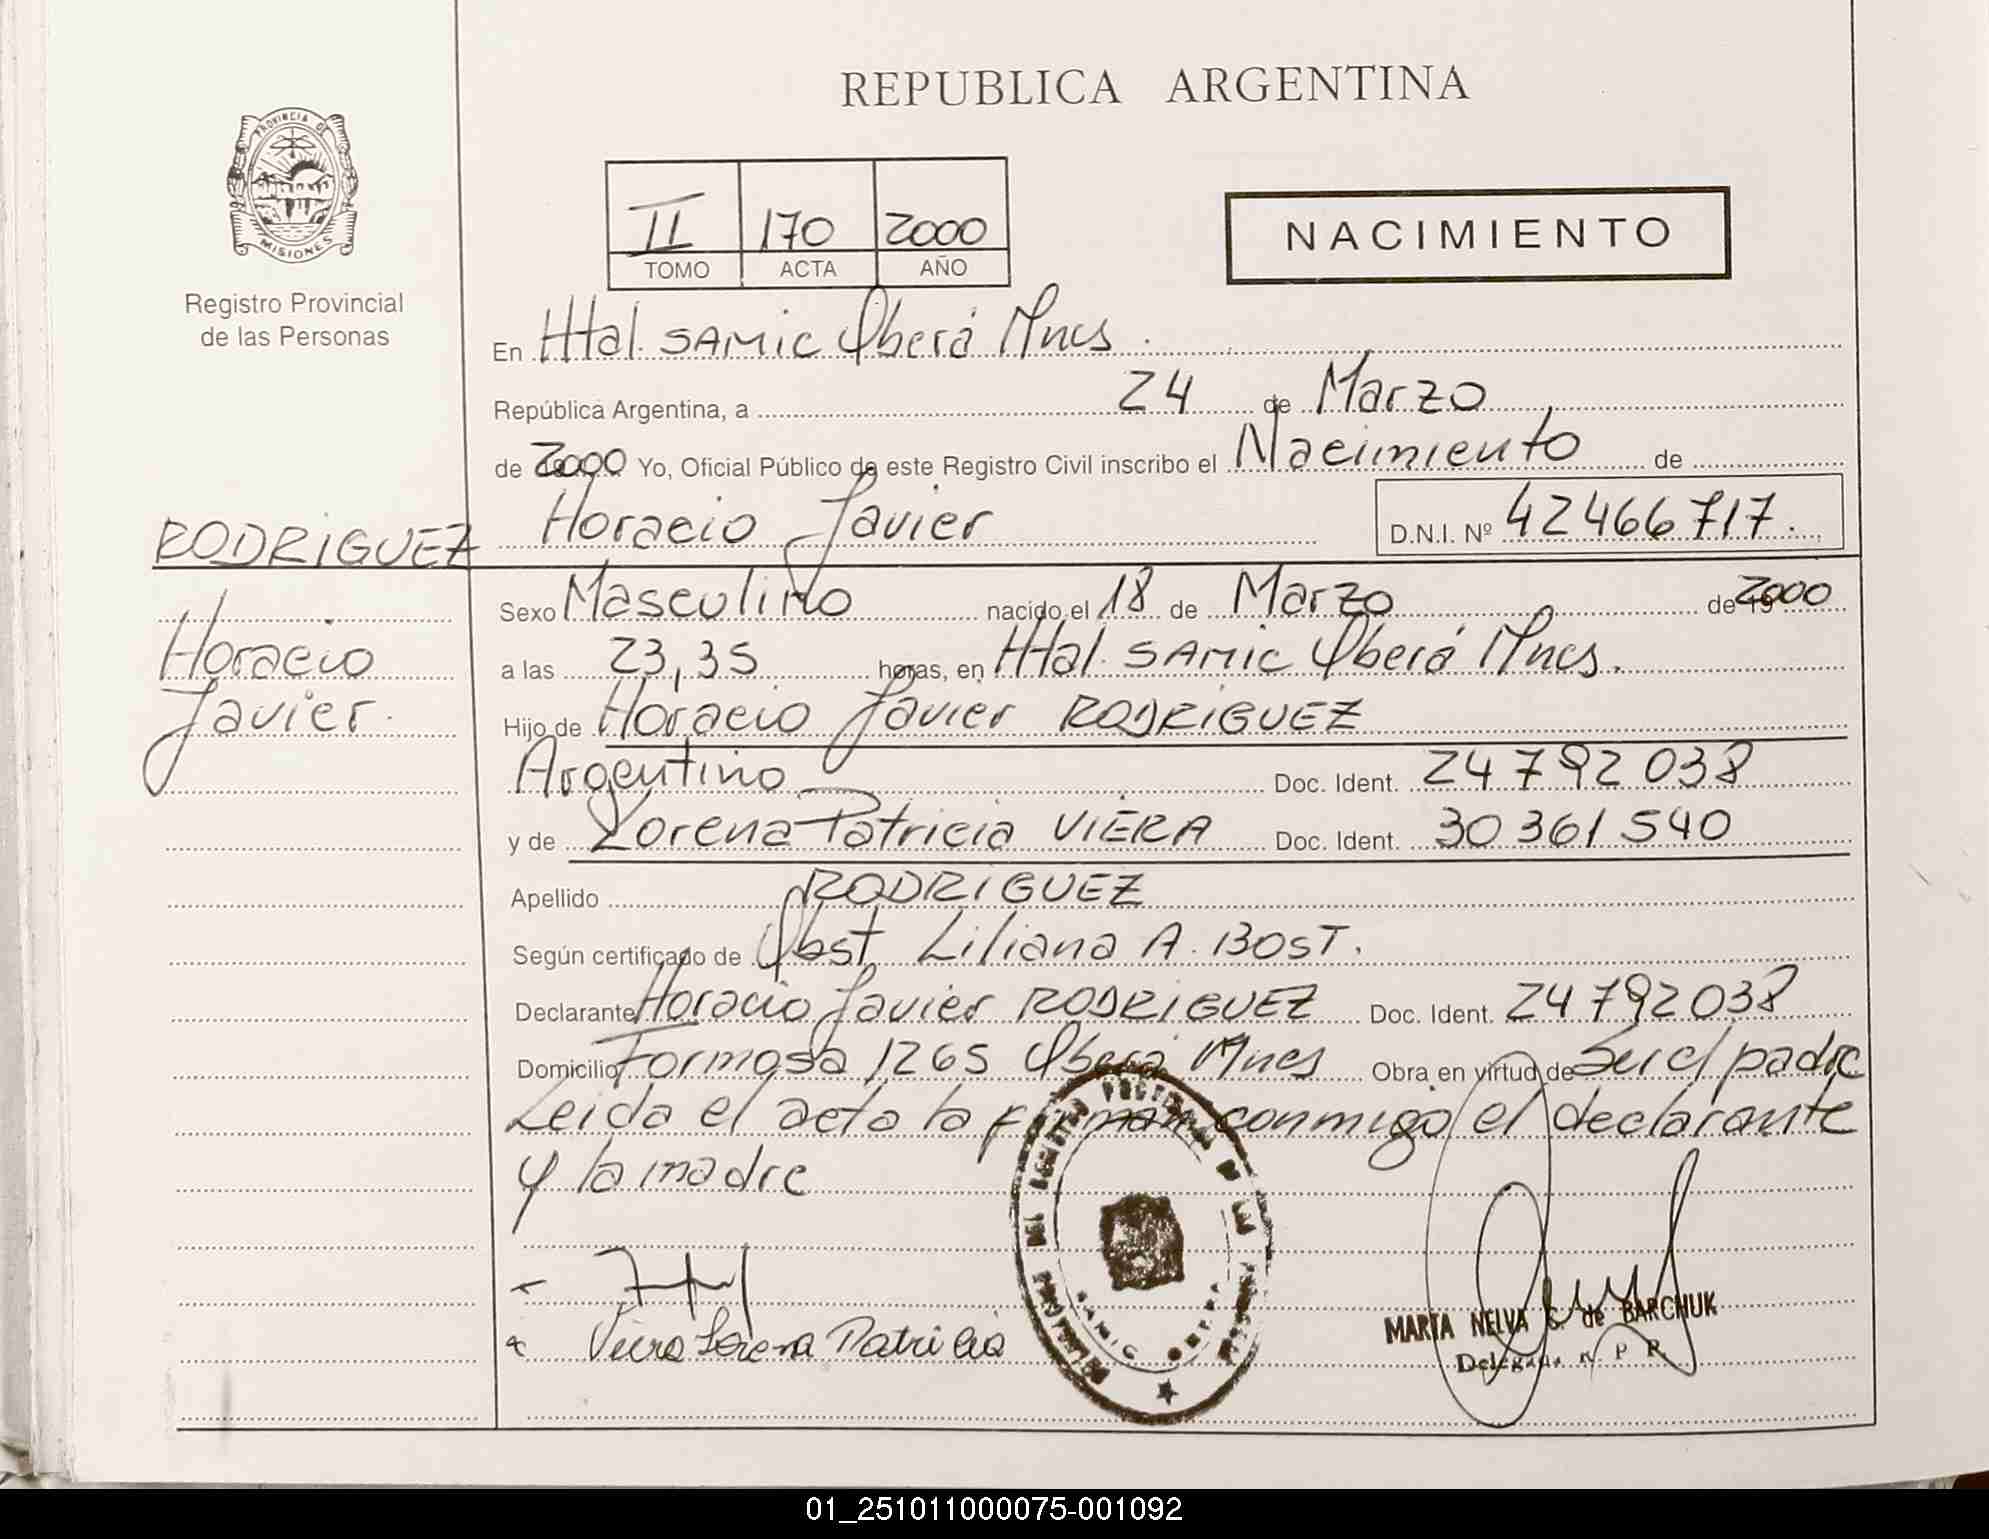 REPUBLICA ARGENTINA
PROVINCIA DE
MISIONES
Registro Provincial
de las Personas
II 170 2000
TOMO ACTA AÑO
NACIMIENTO
En Htal. SAMIC Oberá Mnes.
República Argentina, a 24 de Marzo
de 2000 Yo, Oficial Público de este Registro Civil inscribo el Nacimiento de
Horacio Javier D.N.I. Nº 42466717.
RODRIGUEZ
Horacio
Javier.
Sexo Masculino nacido el 18 de Marzo de 2000
a las 23,35 horas, en Htal. SAMIC Oberá Mnes.
Hijo de Horacio Javier RODRIGUEZ
Argentino Doc. Ident. 24792038
y de Lorena Patricia VIERA Doc. Ident. 30361540
Apellido RODRIGUEZ
Según certificado de Obst Liliana A. BOST.
Declarante Horacio Javier RODRIGUEZ Doc. Ident. 24792038
Domicilio Formosa 1265 Oberá Mnes Obra en virtud de Ser el padre
Leida el acta la firman conmigo el declarante
y la madre
Viera Lorena Patricia
SAMIC OBERA
MARTA NELVA C. de BARCHUK
Delegada R P P
01_251011000075-001092